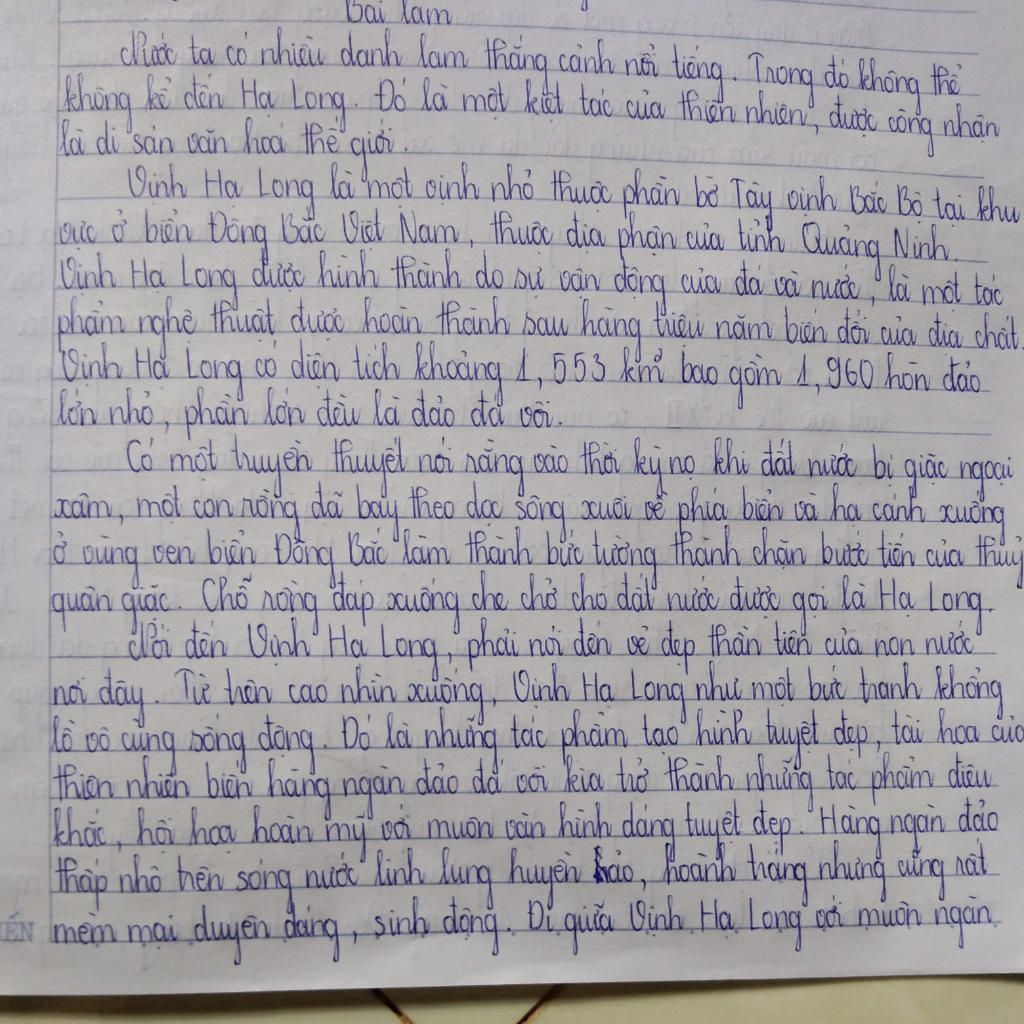 Bài làm
Nước ta có nhiều danh lam thắng cảnh nổi tiếng. Trong đó không thể
không kể đến Hạ Long. Đó là một kiệt tác của thiên nhiên, được công nhận
là di sản văn hoá thế giới.
Vịnh Hạ Long là một vịnh nhỏ thuộc phần bờ Tây vịnh Bắc Bộ tại khu
vực ở biển Đông Bắc Việt Nam, thuộc địa phận của tỉnh Quảng Ninh.
Vịnh Hạ Long được hình thành do sự vận động của đá và nước, là một tác
phẩm nghệ thuật được hoàn thành sau hàng triệu năm biến đổi của địa chất.
Vịnh Hạ Long có diện tích khoảng 1,553 km² bao gồm 1,960 hòn đảo
lớn nhỏ, phần lớn đều là đảo đá vôi.
Có một truyền thuyết nói rằng vào thời kỳ nọ khi đất nước bị giặc ngoại
xâm, một con rồng đã bay theo dọc sông xuôi về phía biển và hạ cánh xuống
ở vùng ven biển Đông Bắc làm thành bức tường thành chặn bước tiến của thuỷ
quân giặc. Chỗ rồng đáp xuống che chở cho đất nước được gọi là Hạ Long.
Nói đến Vịnh Hạ Long, phải nói đến vẻ đẹp thần tiên của non nước
nơi đây. Từ trên cao nhìn xuống, Vịnh Hạ Long như một bức tranh khổng
lồ vô cùng sống động. Đó là những tác phẩm tạo hình tuyệt đẹp, tài hoa của
thiên nhiên biến hàng ngàn đảo đá vôi kia trở thành những tác phẩm điêu
khắc, hội hoạ hoàn mỹ với muôn vàn hình dáng tuyệt đẹp. Hàng ngàn đảo
thấp nhô trên sóng nước linh lung huyền ảo, hoành tráng nhưng cũng rất
mềm mại duyên dáng, sinh động. Đi giữa Vịnh Hạ Long với muôn ngàn